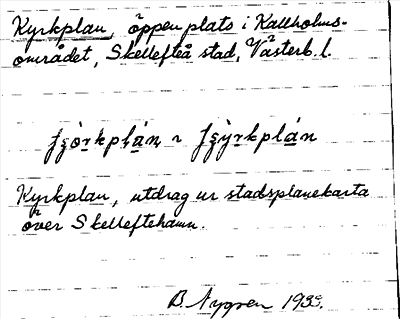 Kyrkplan, öppen plats i Kallholms-
området, Skellefteå stad, Västerb. l.
Kyrkplan, utdrag ur stadsplanekarta
över Skelleftehamn.
B Nygren